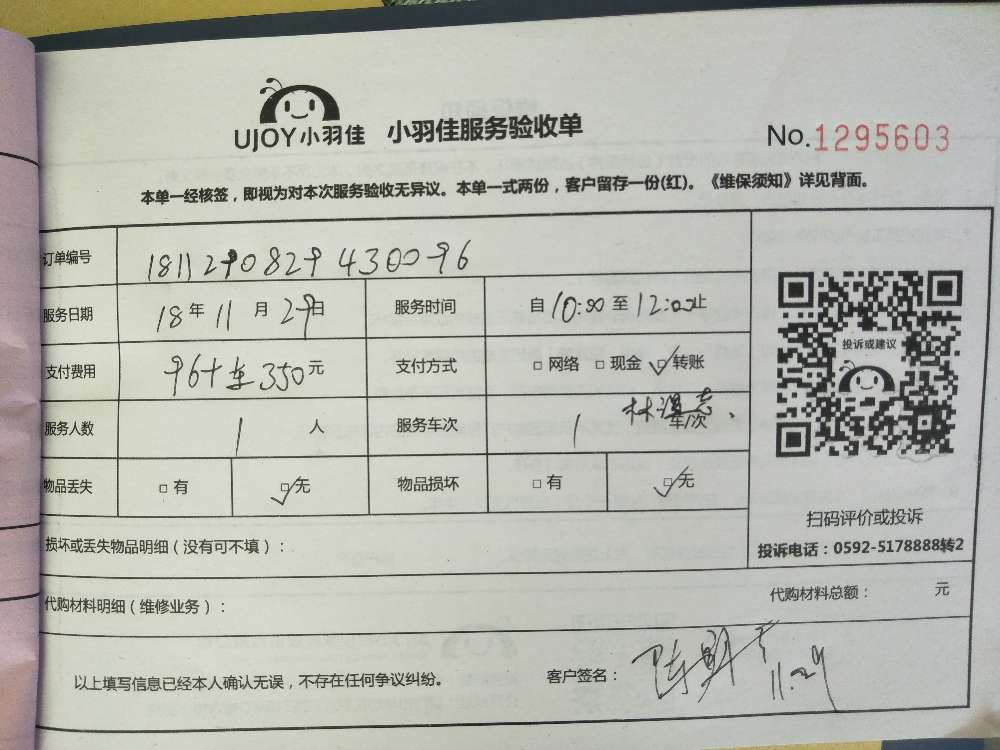 UJOY小羽佳 小羽佳服务验收单
No.1295603
本单一经核签，即视为对本次服务验收无异议。本单一式两份，客户留存一份(红)。《维保须知》详见背面。
订单编号 1811290829430096
服务日期 18年11月29日 服务时间 自10:00至12:00止
支付费用 96+车350元 支付方式 □网络 □现金 □转账
服务人数 1人 服务车次 1车/次
物品丢失 □有 □无 物品损坏 □有 □无
投诉或建议
扫码评价或投诉
投诉电话：0592-5178888转2
损坏或丢失物品明细（没有可不填）：
代购材料明细（维修业务）： 代购材料总额： 元
以上填写信息已经本人确认无误，不存在任何争议纠纷。 客户签名： 11.29